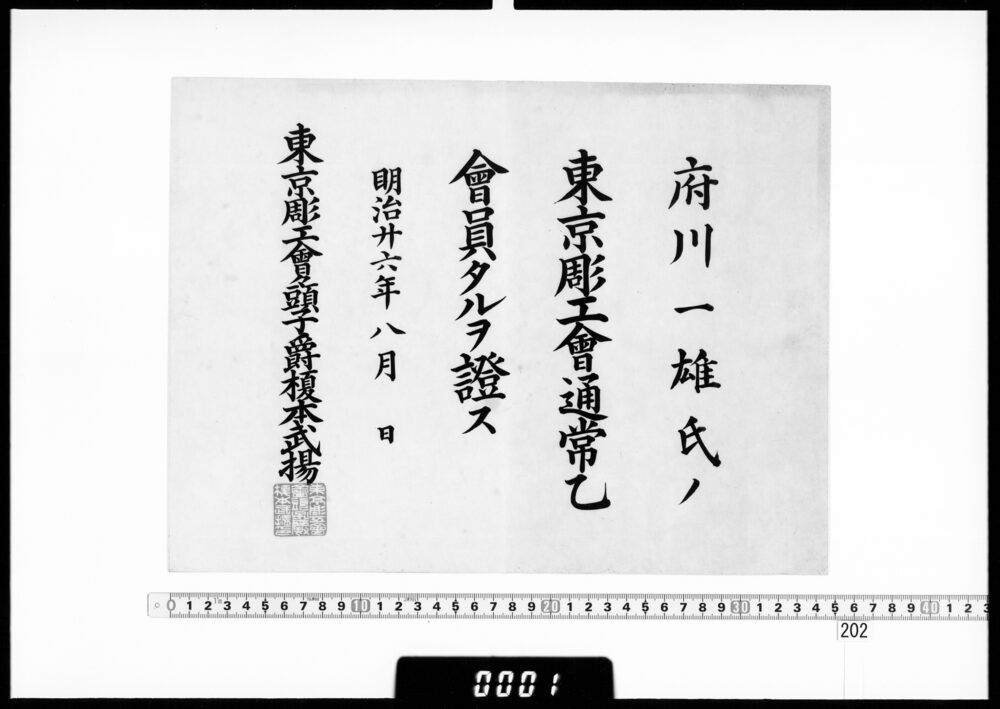 府川一雄氏ノ
東京彫工會通常乙
會員タルヲ證ス
明治廿六年八月　日
東京彫工會々頭子爵榎本武揚
0 1 2 3 4 5 6 7 8 9 10 1 2 3 4 5 6 7 8 9 20 1 2 3 4 5 6 7 8 9 30 1 2 3 4 5 6 7 8 9 40 1 2 3
202
0001